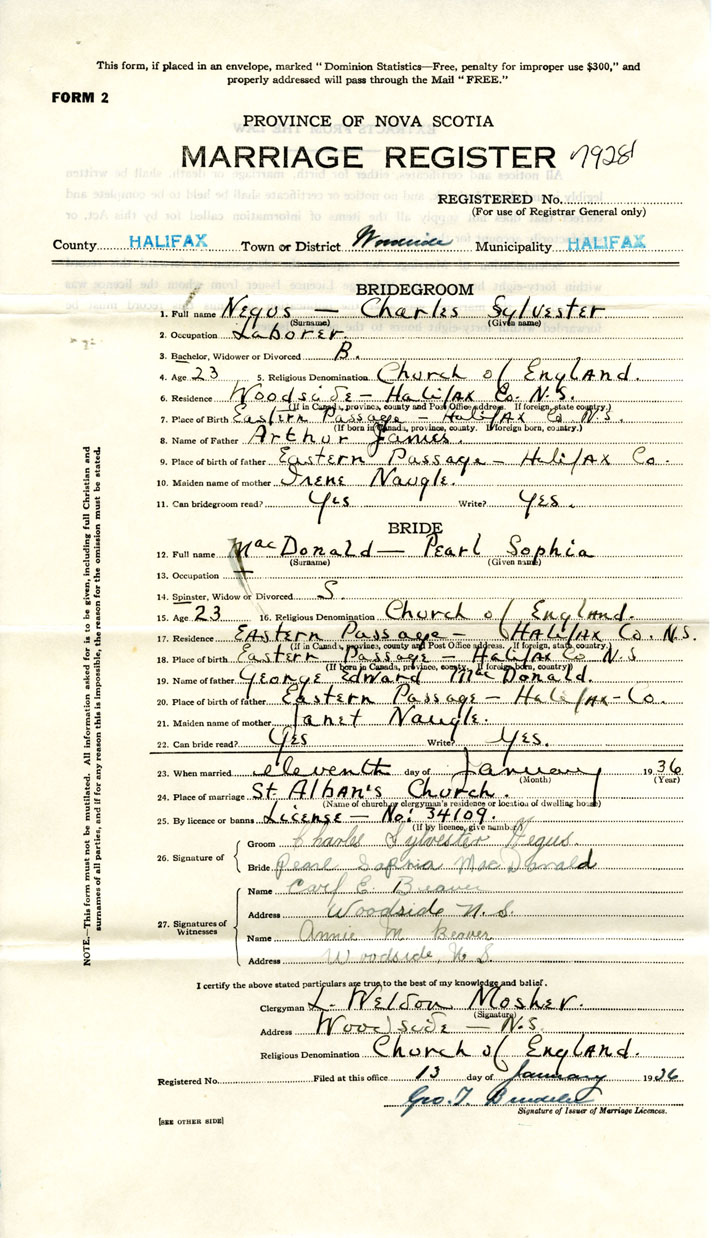 This form, if placed in an envelope, marked "Dominion Statistics—Free, penalty for improper use $300," and
properly addressed will pass through the Mail "FREE."
FORM 2
PROVINCE OF NOVA SCOTIA
MARRIAGE REGISTER 7928
REGISTERED No.
(For use of Registrar General only)
County HALIFAX Town or District Woodside Municipality HALIFAX
BRIDEGROOM
1. Full name Negus — Charles Sylvester
(Surname) (Given name)
2. Occupation Laborer.
3. Bachelor, Widower or Divorced B.
4. Age 23 5. Religious Denomination Church of England.
6. Residence Woodside — Halifax Co. N.S.
(If in Canada, province, county and Post Office address. If foreign, state country.)
7. Place of Birth Eastern Passage — Halifax Co N.S.
(If born in Canada, province, county. If foreign born, country.)
8. Name of Father Arthur James.
9. Place of birth of father Eastern Passage — Halifax Co.
10. Maiden name of mother Irene Naugle.
11. Can bridegroom read? Yes Write? Yes.
BRIDE
12. Full name MacDonald — Pearl Sophia
(Surname) (Given name)
13. Occupation
14. Spinster, Widow or Divorced S.
15. Age 23 16. Religious Denomination Church of England.
17. Residence Eastern Passage — Halifax Co. N.S.
(If in Canada, province, county and Post Office address. If foreign, state country.)
18. Place of birth Eastern Passage — Halifax Co N.S
(If born in Canada, province, county. If foreign born, country)
19. Name of father George Edward MacDonald.
20. Place of birth of father Eastern Passage — Halifax-Co.
21. Maiden name of mother Janet Naugle.
22. Can bride read? Yes Write? Yes.
23. When married eleventh day of January 1936
(Month) (Year)
24. Place of marriage St Alban's Church.
(Name of church, clergyman's residence or location of dwelling house)
25. By licence or banns License — No: 34109.
(If by licence, give number.)
26. Signature of
Groom Charles Sylvester Negus.
Bride Pearl Sophia MacDonald
27. Signatures of Witnesses
Name Carl E. Beaver
Address Woodside N.S.
Name Annie M Beaver
Address Woodside, N S
I certify the above stated particulars are true to the best of my knowledge and belief.
Clergyman L. Weldon Mosher.
(Signature)
Address Woodside — N.S.
Religious Denomination Church of England.
Registered No. Filed at this office 13 day of January 1936
Geo. T.
Signature of Issuer of Marriage Licences.
[SEE OTHER SIDE]
NOTE.—This form must not be mutilated. All information asked for is to be given, including full Christian and
surnames of all parties, and if for any reason this is impossible, the reason for the omission must be stated.